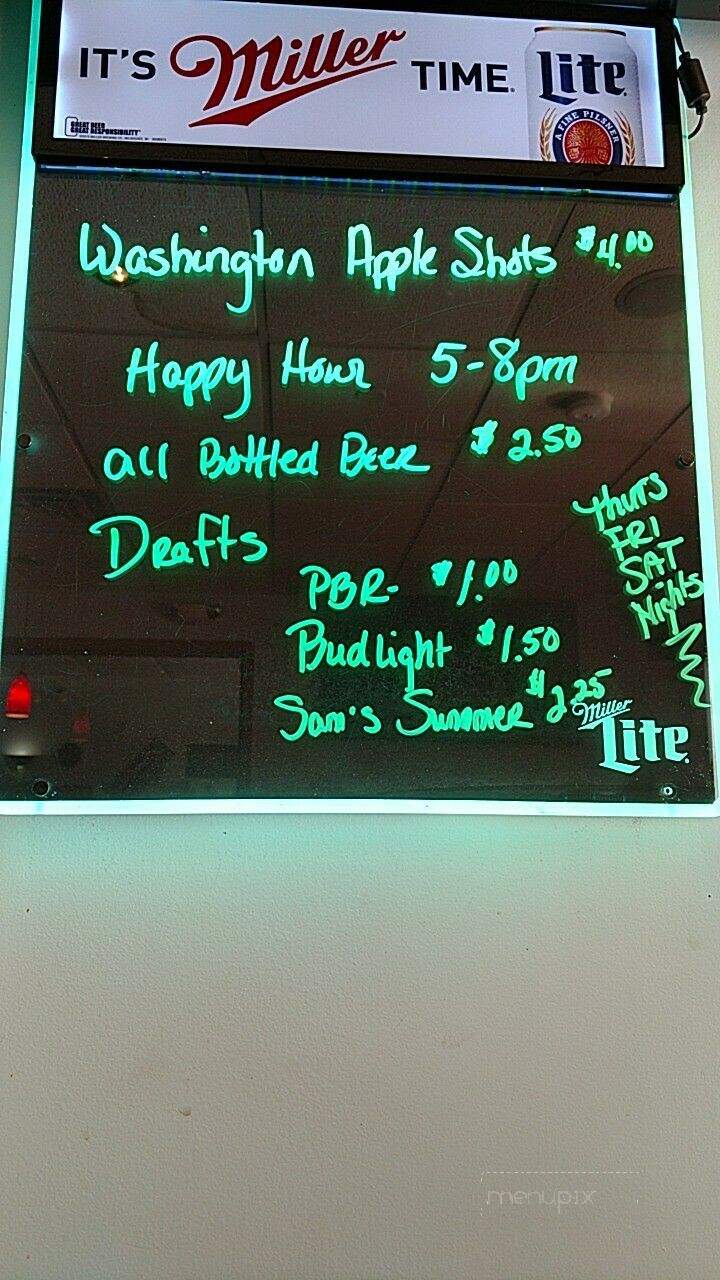 IT'S Miller TIME. Lite
A FINE PILSNER
GREAT BEER
GREAT RESPONSIBILITY
Washington Apple Shots $4.00
Happy Hour 5-8pm
All Bottled Beer $2.50
Drafts
PBR- $1.00
Bud light $1.50
Sam's Summer $2.25
Thurs
FRI
SAT
Nights
Miller
Lite
menupix